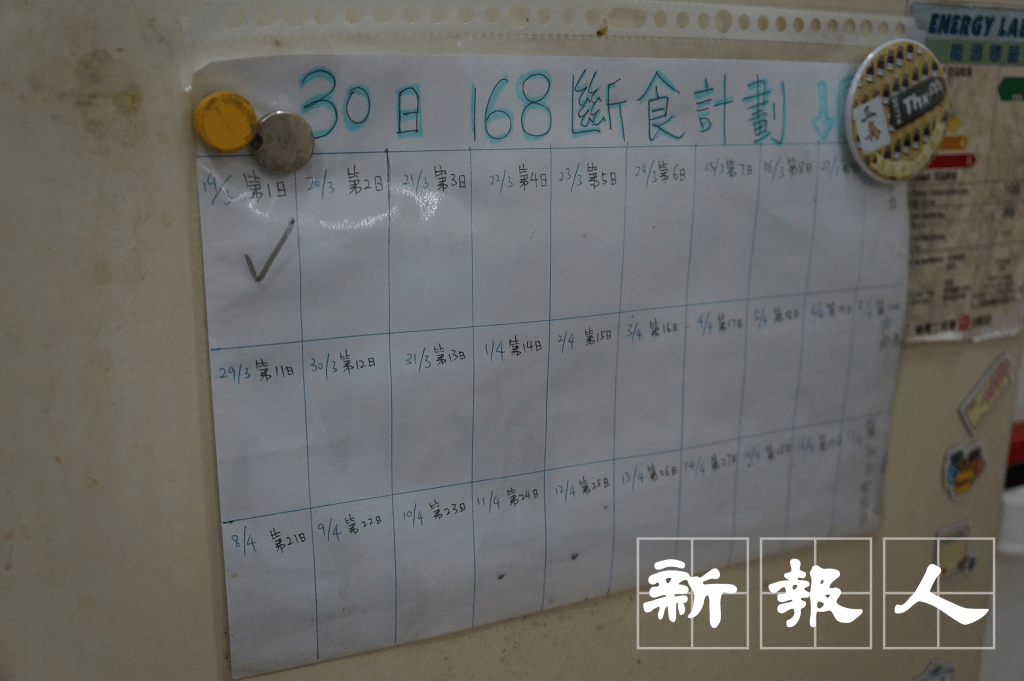 30日 168斷食計劃 ↓
ENERGY LA
能源標籤
Thx
19/3 第1日 20/3 第2日 21/3 第3日 22/3 第4日 23/3 第5日 24/3 第6日 25/3 第7日 26/3 第8日
29/3 第11日 30/3 第12日 31/3 第13日 1/4 第14日 2/4 第15日 3/4 第16日 4/4 第17日 5/4 第18日
8/4 第21日 9/4 第22日 10/4 第23日 11/4 第24日 12/4 第25日 13/4 第26日 14/4 第27日
新報人